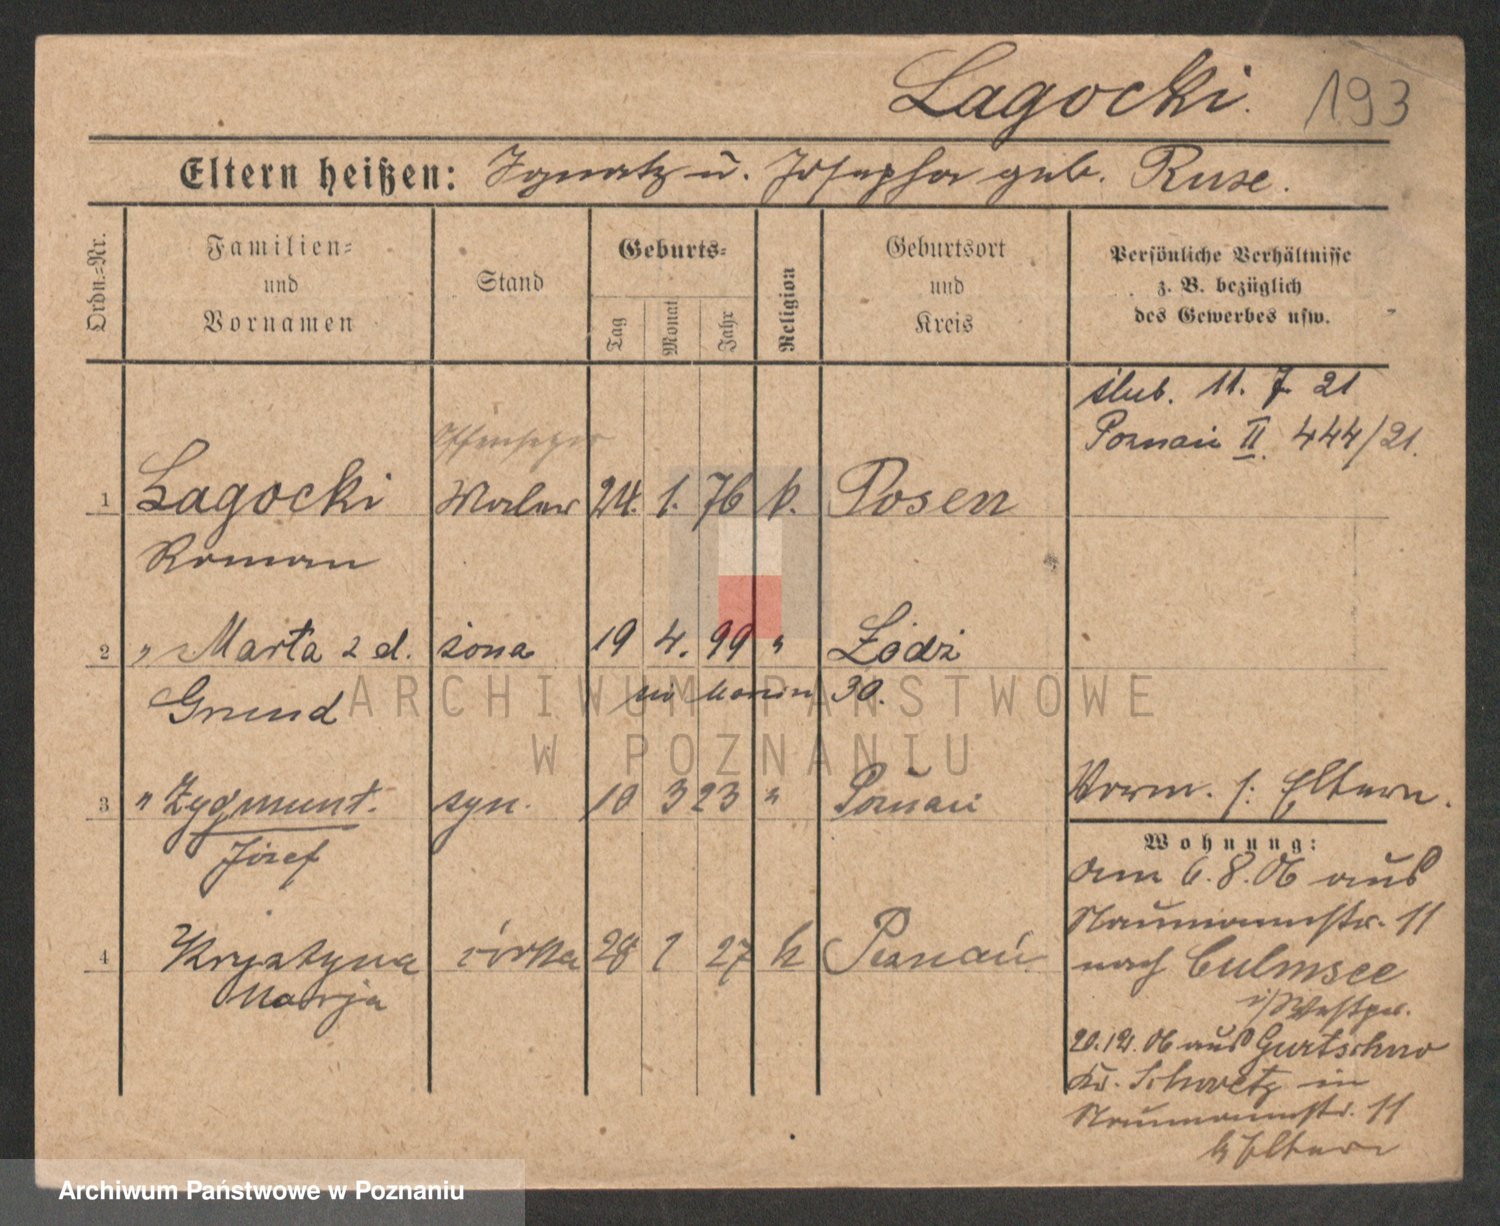 Lagocki. 193
Eltern heißen: Ignatz u. Josepha geb. Ruse.
Ordn.-Nr.
Familien-
und
Vornamen
Stand
Geburts-
Tag
Monat
Jahr
Religion
Geburtsort
und
Kreis
Persönliche Verhältnisse
z. B. bezüglich
des Gewerbes usw.
ślub. 11. 7. 21
Poznań II. 444/21.
1 Lagocki Maler 24. 1. 76 k. Posen
Roman
2 " Marta 2 d. żona 19 4. 99 " Łódź
Grund 30.
ARCHIWUM PAŃSTWOWE
W POZNANIU
3 " Zygmunt. syn. 10 3 23 " Poznań
Józef
Vorm. s: Eltern.
Wohnung:
am 6.8.06 aus
Naumannstr. 11
nach Culmsee
i/Westpr.
20.12.06 aus Gurtschno
Kr. Schwetz in
Naumannstr. 11
b Eltern
4 Krystyna córka 28 1 27 k Poznań
Marja
Archiwum Państwowe w Poznaniu